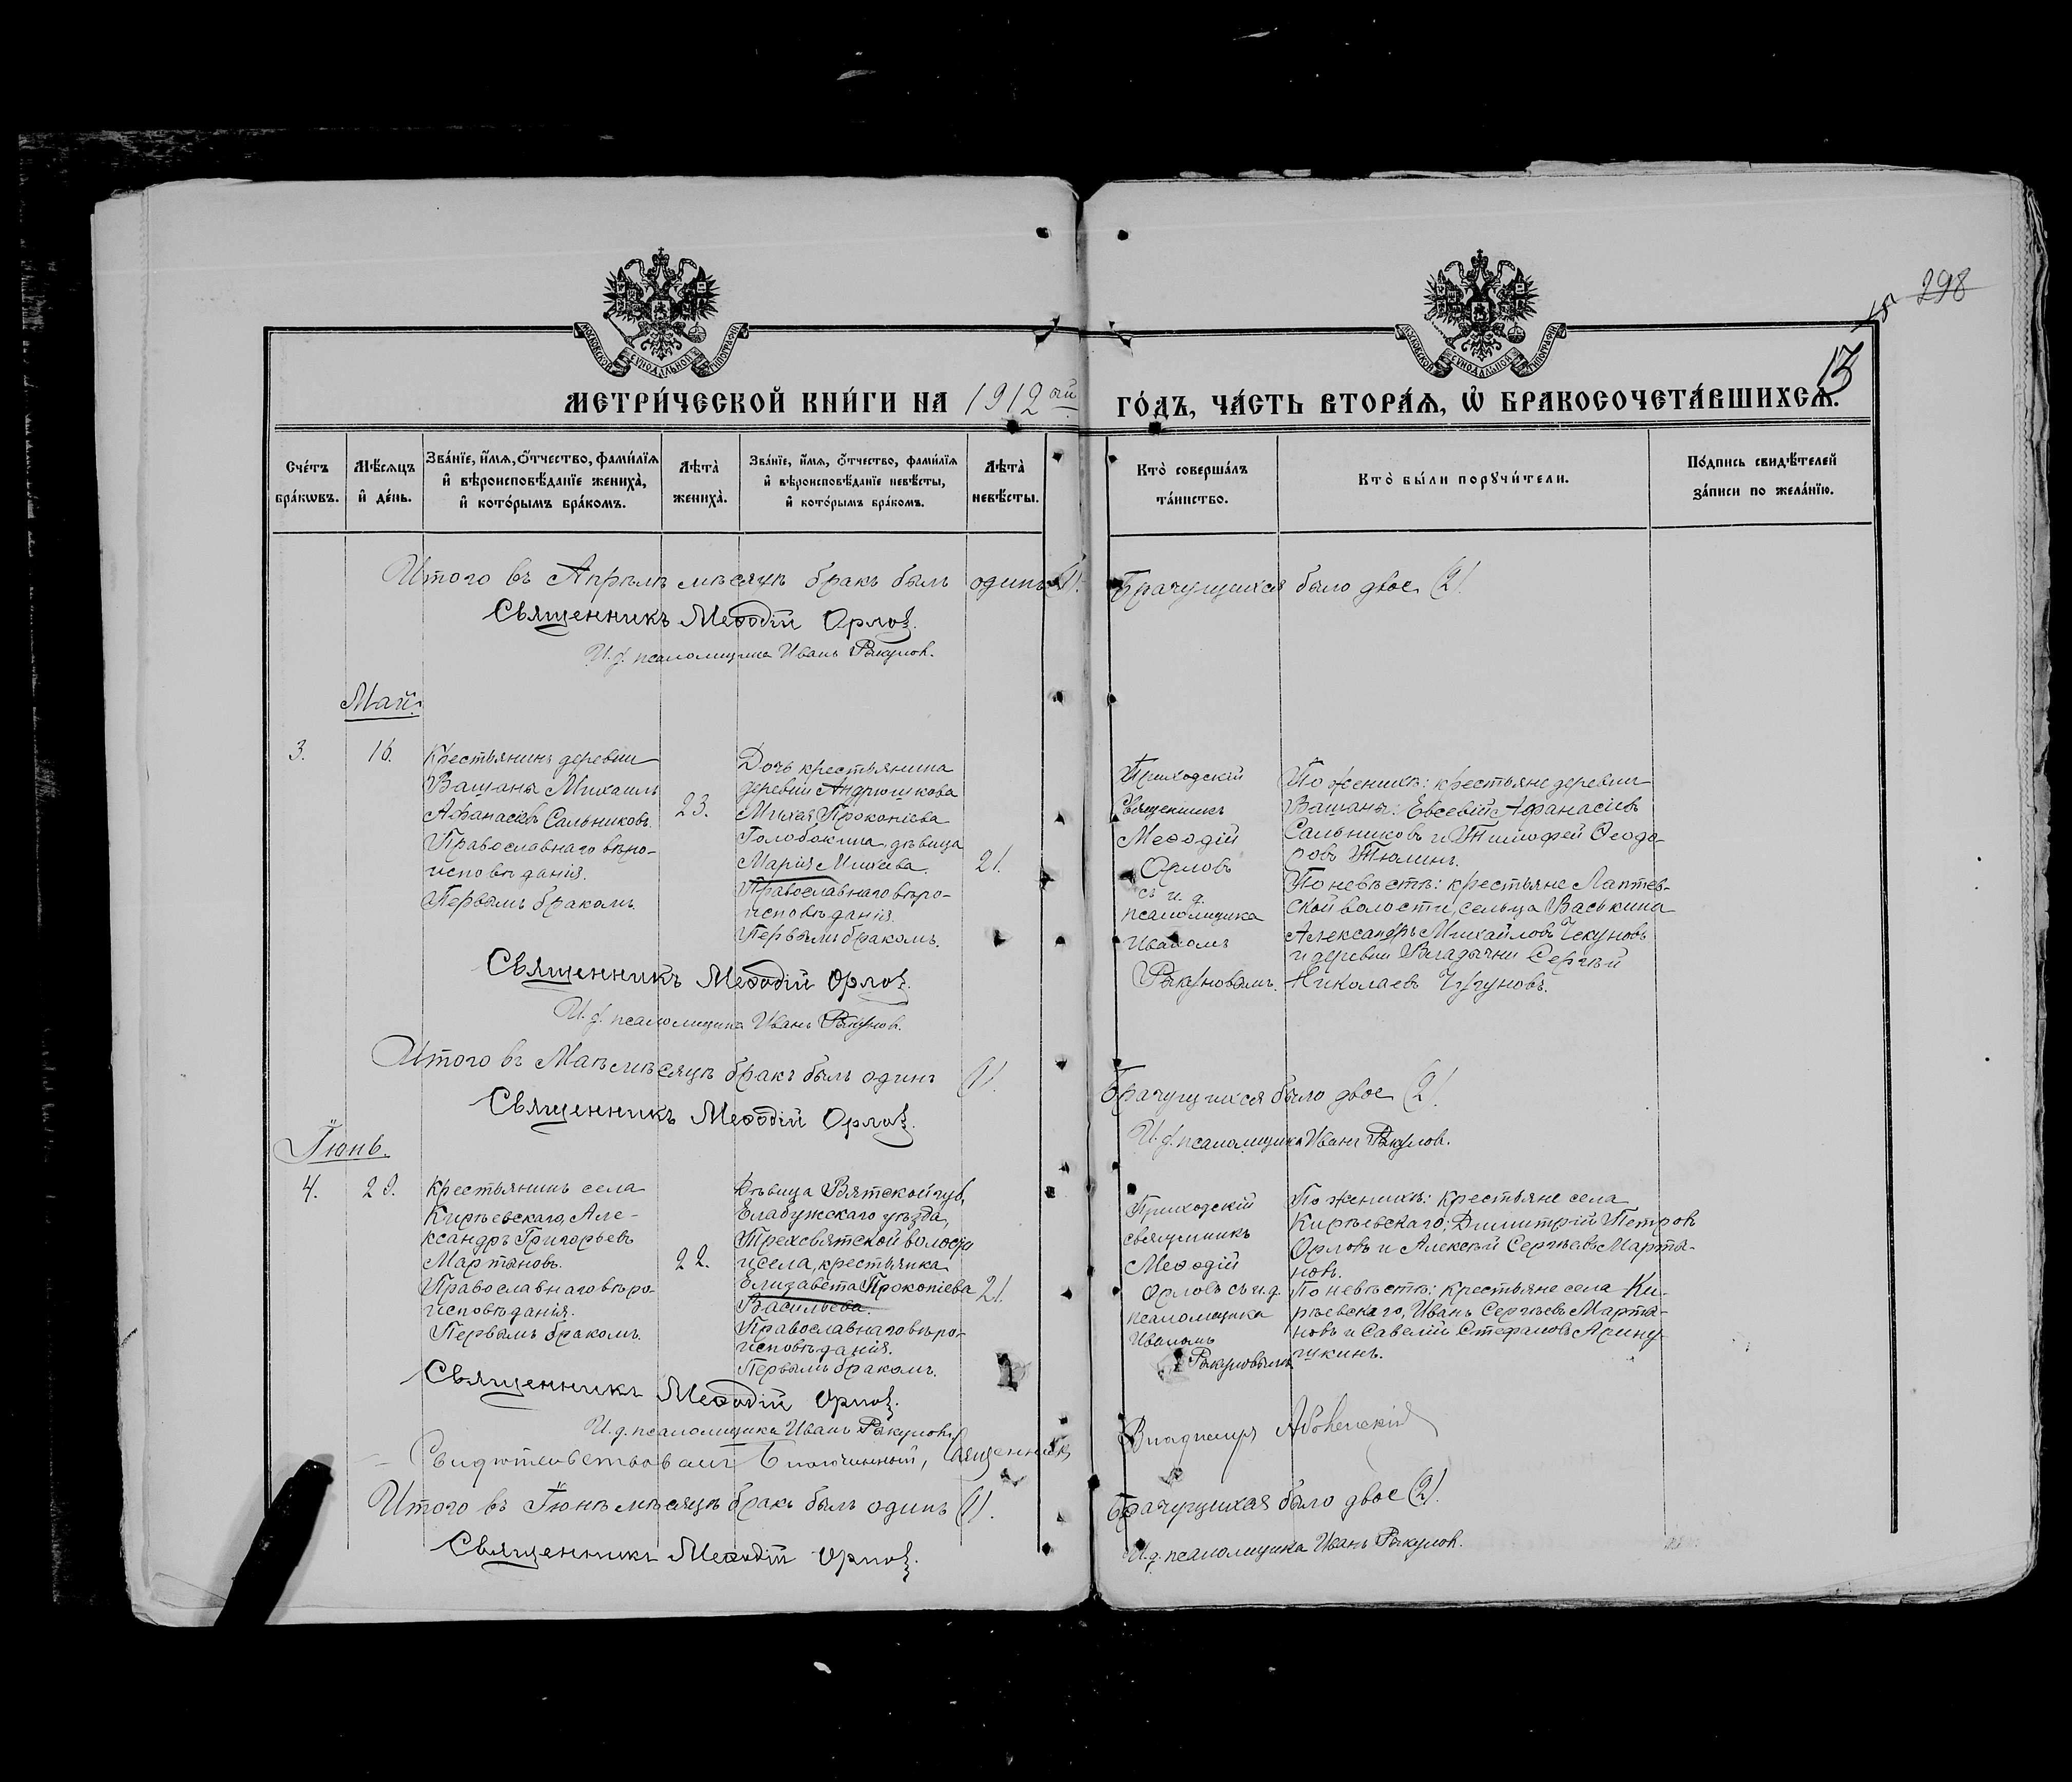 298
13
МОСКОВСКОЙ СѴНОДАЛЬНОЙ ТИПОГРАФІИ
МОСКОВСКОЙ СѴНОДАЛЬНОЙ ТИПОГРАФІИ
МЕТРИ́ЧЕСКОЙ КНИ́ГИ НА 1912ой ГО́ДЪ, ЧА́СТЬ ВТОРА́Ѧ, Ѡ҆ БРАКОСОЧЕТА́ВШИХСѦ.
Сче́тъ бра́кѡвъ.
Мѣ́сяцъ и҆ де́нь.
Зва́нїе, и҆́мѧ, ѻ҆́тчество, фами́лїѧ
и҆ вѣроисповѣ́данїе жениха̀,
и҆ кото́рымъ бра́комъ.
Лѣта̀ жениха̀.
Зва́нїе, и҆́мѧ, ѻ҆́тчество, фами́лїѧ
и҆ вѣроисповѣ́данїе невѣ́сты,
и҆ кото́рымъ бра́комъ.
Лѣта̀ невѣ́сты.
Кто̀ соверша́лъ
та́инство.
Кто̀ бы́ли порꙋчи́тели.
По́дпись свидѣ́телей
за́писи по жела́нїю.
Итого въ Апрѣлѣ мѣсяцѣ бракъ былъ одинъ (1). Брачущихся было двое (2).
Священникъ Меѳодій Орловъ.
И. д. псаломщика Иванъ Ракуновъ.
Май.
3.
16.
Крестьянинъ деревни
Вашаны Михаилъ
Аѳанасіевъ Сальниковъ.
Православнаго вѣро-
исповѣданія.
Первымъ бракомъ.
23.
Дочь крестьянина
деревни Андрюшкова
Михея Прокопіева
Голобокина, дѣвица
Марія Михеева.
Православнаго вѣро-
исповѣданія.
Первымъ бракомъ.
21.
Приходскій
Священникъ
Меѳодій
Орловъ
съ и. д.
псаломщика
Иваномъ
Ракуновымъ.
По женихѣ: крестьяне деревни
Вашаны: Евсевій Аѳанасіевъ
Сальниковъ и Тимоѳей Ѳеодо-
ровъ Тюминъ.
По невѣстѣ: крестьяне Лаптев-
ской волости, сельца Васькина
Александръ Михайловъ Чекуновъ
и деревни Сергѣй
Николаевъ Чугуновъ.
Священникъ Меѳодій Орловъ.
И. д. псаломщика Иванъ Ракуновъ.
Итого въ Маѣ мѣсяцѣ бракъ былъ одинъ (1). Брачущихся было двое (2).
Священникъ Меѳодій Орловъ.
И. д. псаломщика Иванъ Ракуновъ.
Іюнь.
4.
Крестьянинъ села
Кирѣевскаго, Але-
ксандръ Григорьевъ
Мартыновъ.
Православнаго вѣро-
исповѣданія.
Первымъ бракомъ.
22.
Дѣвица Вятской губ,
Елабужскаго уѣзда,
Трехсвятской волости
и села, крестьянка
Елизавета Прокопіева
Васильева.
Православнаго вѣро-
исповѣданія.
Первымъ бракомъ.
21.
Приходскій
священникъ
Меѳодій
Орловъ съ и. д.
псаломщика
Иваномъ
Ракуновымъ.
По женихѣ: крестьяне села
Кирѣевскаго; Димитрій Петровъ
Орловъ и Алексѣй Сергѣевъ Марты-
новъ.
По невѣстѣ: крестьяне села Ки-
рѣевскаго, Иванъ Сергѣевъ Марты-
новъ и Савелій Стефановъ Арину-
шкинъ.
Священникъ Меѳодій Орловъ.
И. д. псаломщика Иванъ Ракуновъ.
Свидѣтельствовалъ Благочинный, Священникъ Владимиръ
Итого въ Іюнѣ мѣсяцѣ бракъ былъ одинъ (1). Брачущихся было двое (2).
Священникъ Меѳодій Орловъ.
И. д. псаломщика Иванъ Ракуновъ.